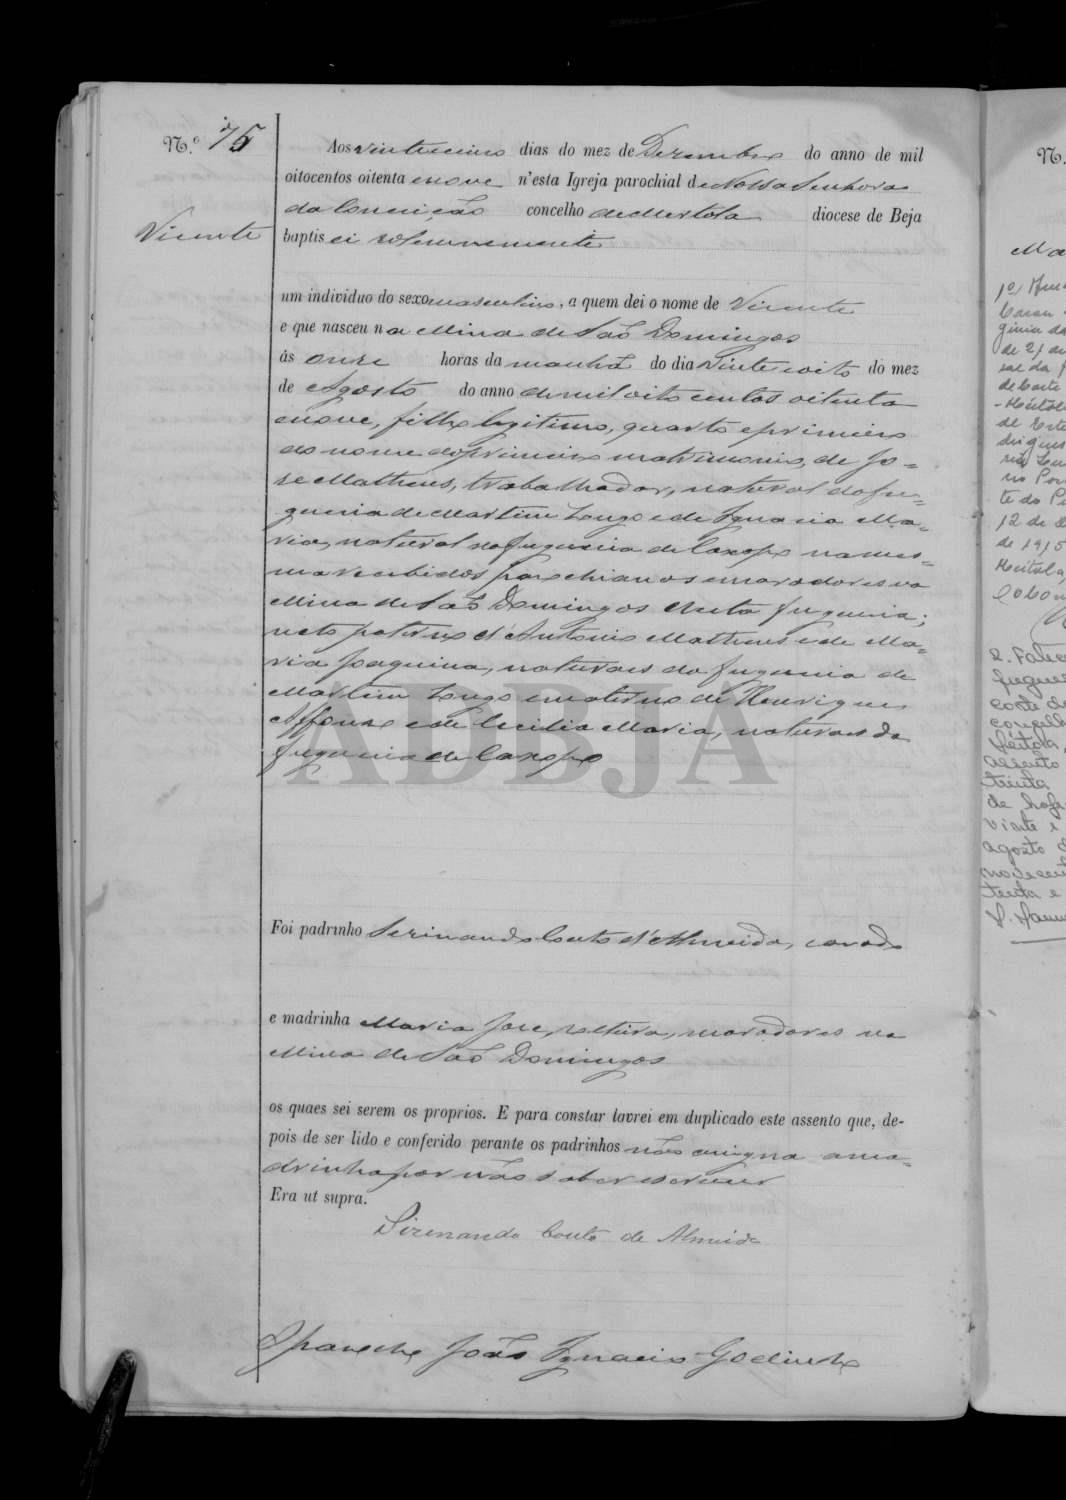 N.º 75
Vicente
Aos vinte cinco dias do mez de Dezembro do anno de mil
oitocentos oitenta e nove n'esta Igreja parochial de Nossa Senhora
da Conceição concelho de Mertola diocese de Beja
baptisei solemnemente
um individuo do sexo masculino, a quem dei o nome de Vicente
e que nasceu na Mina de São Domingos
ás onze horas da manhã do dia vinte e oito do mez
de Agosto do anno de mil oito centos oitenta
e nove, filho legitimo, quarto e primeiro
do nome do primeiro matrimonio, de Jo=
se Matheus, trabalhador, natural da fre=
guezia de Martim Longo e de Ignacia Ma=
ria, natural da freguezia de Caxopo na mes=
ma recebidos, parochianos e moradores na
Mina de São Domingos desta freguezia;
neto paterno d'Antonio Matheus e de Ma=
ria Joaquina, naturaes da freguezia de
Martim Longo e materno de Henrique
Affonso e de Cecilia Maria, naturaes da
freguezia de Caxopo
ADBJA
Foi padrinho Serinando Couto d'Almeida, casado
e madrinha Maria José, solteira, moradores na
Mina de São Domingos
os quaes sei serem os proprios. E para constar lavrei em duplicado este assento que, de-
pois de ser lido e conferido perante os padrinhos não assigna a ma=
drinha por não saber escrever
Era ut supra.
Sirenando Couto de Almeida
O parocho João Ignacio Godinho
N.
Ma
de 21 de
de Corte
12 de
de 1915
Mértola,
freguesia
corte do
concelho
Mértola,
assento
trinta
de hoje
vinte e
agosto